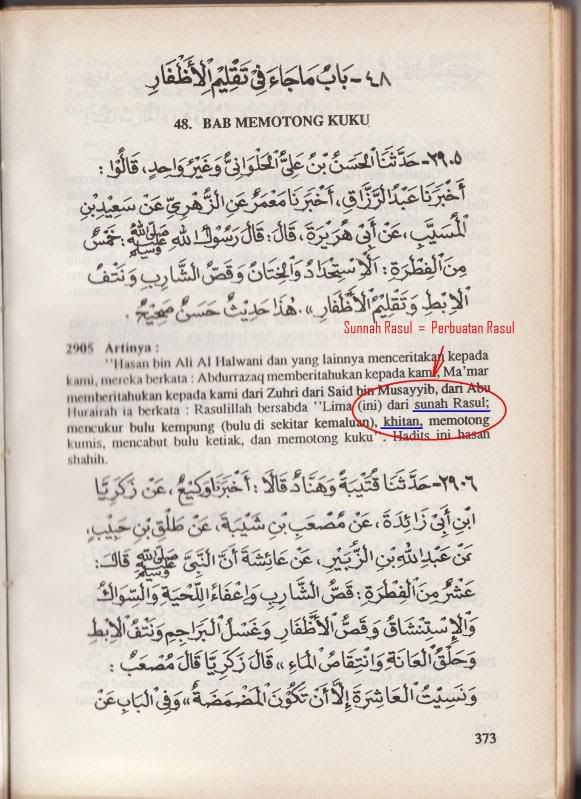 ٤٨- بَابُ مَا جَاءَ فِي تَقْلِيْمِ الْأَظْفَارِ
48. BAB MEMOTONG KUKU
٢٩٠٥- حَدَّثَنَا الْحَسَنُ بْنُ عَلِيٍّ الْحَلْوَانِيُّ وَغَيْرُ وَاحِدٍ، قَالُوْا :
أَخْبَرَنَا عَبْدُ الرَّزَّاقِ، أَخْبَرَنَا مَعْمَرٌ عَنِ الزُّهْرِيِّ عَنْ سَعِيْدِ بْنِ
الْمُسَيَّبِ، عَنْ أَبِيْ هُرَيْرَةَ، قَالَ: قَالَ رَسُوْلُ اللهِ ﷺ : خَمْسٌ
مِنَ الْفِطْرَةِ: اَلْاِسْتِحْدَادُ وَالْخِتَانُ وَقَصُّ الشَّارِبِ وَنَتْفُ
الْاِبْطِ وَتَقْلِيْمُ الْأَظْفَارِ». هٰذَا حَدِيْثٌ حَسَنٌ صَحِيْحٌ .
Sunnah Rasul = Perbuatan Rasul
2905 Artinya :
"Hasan bin Ali Al Halwani dan yang lainnya menceritakan kepada
kami, mereka berkata : Abdurrazaq memberitahukan kepada kami, Ma'mar
memberitahukan kepada kami dari Zuhri dari Said bin Musayyib, dari Abu
Hurairah ia berkata : Rasulillah bersabda "Lima (ini) dari sunah Rasul;
mencukur bulu kempung (bulu di sekitar kemaluan), khitan, memotong
kumis, mencabut bulu ketiak, dan memotong kuku". Hadits ini hasan
shahih.
٢٩٠٦- حَدَّثَنَا قُتَيْبَةُ وَهَنَّادٌ قَالَا: أَخْبَرَنَا وَكِيْعٌ، عَنْ زَكَرِيَّا
ابْنِ أَبِيْ زَائِدَةَ، عَنْ مُصْعَبِ بْنِ شَيْبَةَ، عَنْ طَلْقِ بْنِ حَبِيْبٍ،
عَنْ عَبْدِ اللهِ بْنِ الزُّبَيْرِ، عَنْ عَائِشَةَ أَنَّ النَّبِيَّ ﷺ قَالَ:
عَشْرٌ مِنَ الْفِطْرَةِ: قَصُّ الشَّارِبِ وَإِعْفَاءُ اللِّحْيَةِ وَالسِّوَاكُ
وَالْاِسْتِنْشَاقُ وَقَصُّ الْأَظْفَارِ وَغَسْلُ الْبَرَاجِمِ وَنَتْفُ الْاِبْطِ
وَحَلْقُ الْعَانَةِ وَانْتِقَاصُ الْمَاءِ» قَالَ زَكَرِيَّا قَالَ مُصْعَبٌ :
وَنَسِيْتُ الْعَاشِرَةَ إِلَّا أَنْ تَكُوْنَ الْمَضْمَضَةُ» وَفِي الْبَابِ عَنْ
373